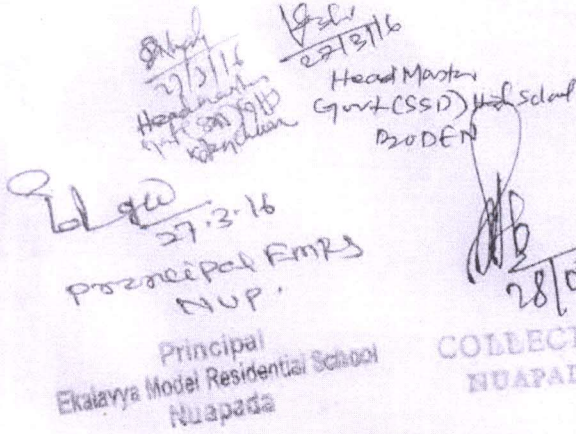 27/3/16
Headmaster
Govt (SSD) 
27/3/16
Head Master
Govt (SSD) High School
BODEN
27.3.16
Principal EMRS
NUP.
Principal
Ekalavya Model Residential School
Nuapada
28/0
COLLECT
NUAPAD